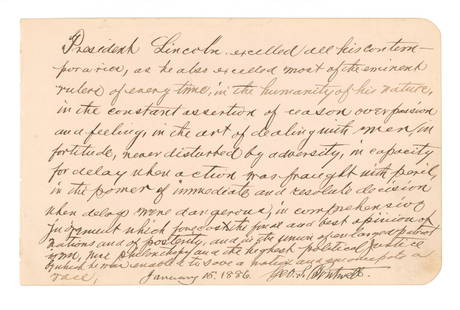 President Lincoln excelled all his contem-
poraries, as he also excelled most of the eminent
rulers of every time, in the humanity of his nature,
in the constant assertion of reason over passion
and feeling, in the art of dealing with men, in
fortitude, never disturbed by adversity, in capacity
for delay when action was fraught with peril,
in the power of immediate and resolute decision
when delays were dangerous, in comprehensive
judgment which forecasts the final and best opinion of
nations and of posterity, and in the union of enlarged patriot
ism, wise philanthropy and the highest political justice
by which he was enabled to save a nation and emancipate a
race.
January 15. 1886. Geo. S.